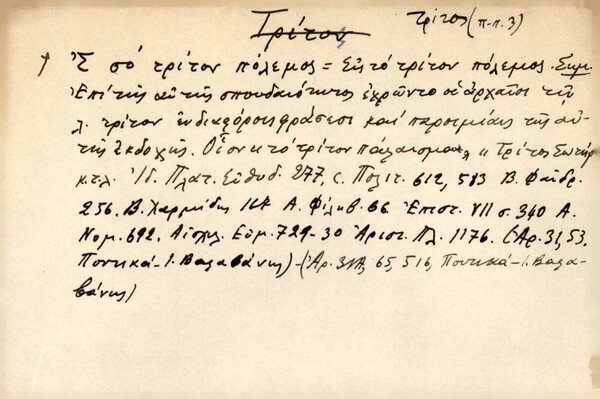 Τρίτον τρίτος (π.π. 3)
Ἐ σό τρίτον πόλεμος = Εἰς τό τρίτον πόλεμος. Σημ.
Ἐπί τῆς αὐτῆς σπουδαιότητος ἐχρῶντο οἱ ἀρχαῖοι τήν
λ. τρίτον ἐν διαφόροις φράσεσι καί παροιμίαις τῆς αὐ-
τῆς ἐκδοχῆς. Οἷον « τό τρίτον πάλαισμα», « Τρίτος Σωτήρ
κ.τ.λ. Ἰδ. Πλατ. Εὐθυδ. 277, c. Πολιτ. 612, 583 Β. Φαῖδρ.
256. Β. Χαρμίδης 167 Α. Φίληβ. 66 Ἐπιστ. VII σ. 340 Α.
Νομ. 692, Αἰσχ. Εὐμ. 729-30 Ἀριστ. Πλ. 1176. (Ἀρ. 31, 53,
Ποντικά - Ι. Βαλαβάνης) - (Ἀρ. 65, 516, Ποντικά - Ι. Βαλα-
βάνης)